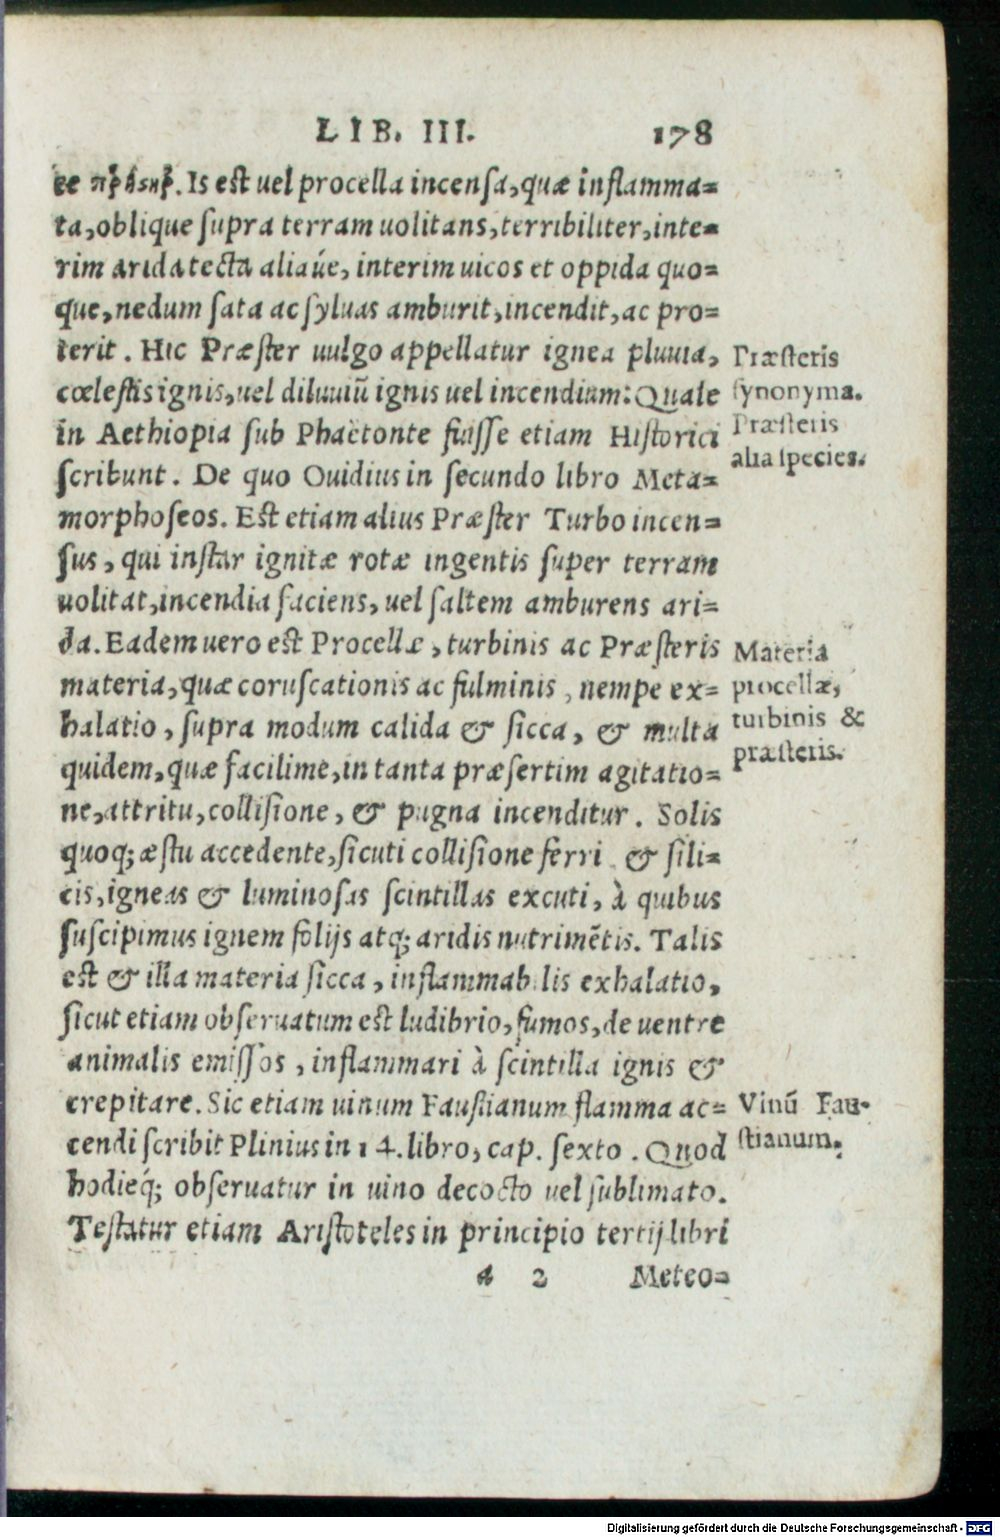 LIB. III. 178
ce πρηστηρ. Is est uel procella incensa, quæ inflamma=
ta, oblique supra terram uolitans, terribiliter, inte=
rim arida tecta aliaúe, interim uicos et oppida quo=
que, nedum sata ac syluas amburit, incendit, ac pro=
terit. Hic Præster uulgo appellatur ignea pluuia,
cœlestis ignis, uel diluuiũ ignis uel incendium: Quale
in Aethiopia sub Phaëtonte fuisse etiam Historici
scribunt. De quo Ouidius in secundo libro Meta=
morphoseos. Est etiam alius Præster Turbo incen=
sus, qui instar ignitæ rotæ ingentis super terram
uolitat, incendia faciens, uel saltem amburens ari=
da. Eadem uero est Procellæ, turbinis ac Præsteris
materia, quæ coruscationis ac fulminis, nempe ex=
halatio, supra modum calida & sicca, & multa
quidem, quæ facilime, in tanta præsertim agitatio=
ne, attritu, collisione, & pugna incenditur. Solis
quoq; æstu accedente, sicuti collisione ferri & sili=
cis, igneas & luminosas scintillas excuti, à quibus
suscipimus ignem folijs atq; aridis nutrimẽtis. Talis
est & illa materia sicca, inflammabilis exhalatio,
sicut etiam obseruatum est ludibrio, fumos, de uentre
animalis emissos, inflammari à scintilla ignis &
crepitare. Sic etiam uinum Faustianum flamma ac=
cendi scribit Plinius in 14. libro, cap. sexto. Quod
hodieq́; obseruatur in uino decocto uel sublimato.
Testatur etiam Aristoteles in principio tertij libri
2 Meteo=
Præsteris
synonyma.
Præsteris
alia species.
Materia
procellæ,
turbinis &
præsteris.
Vinũ Fau-
stianum.
Digitalisierung gefördert durch die Deutsche Forschungsgemeinschaft - DFG